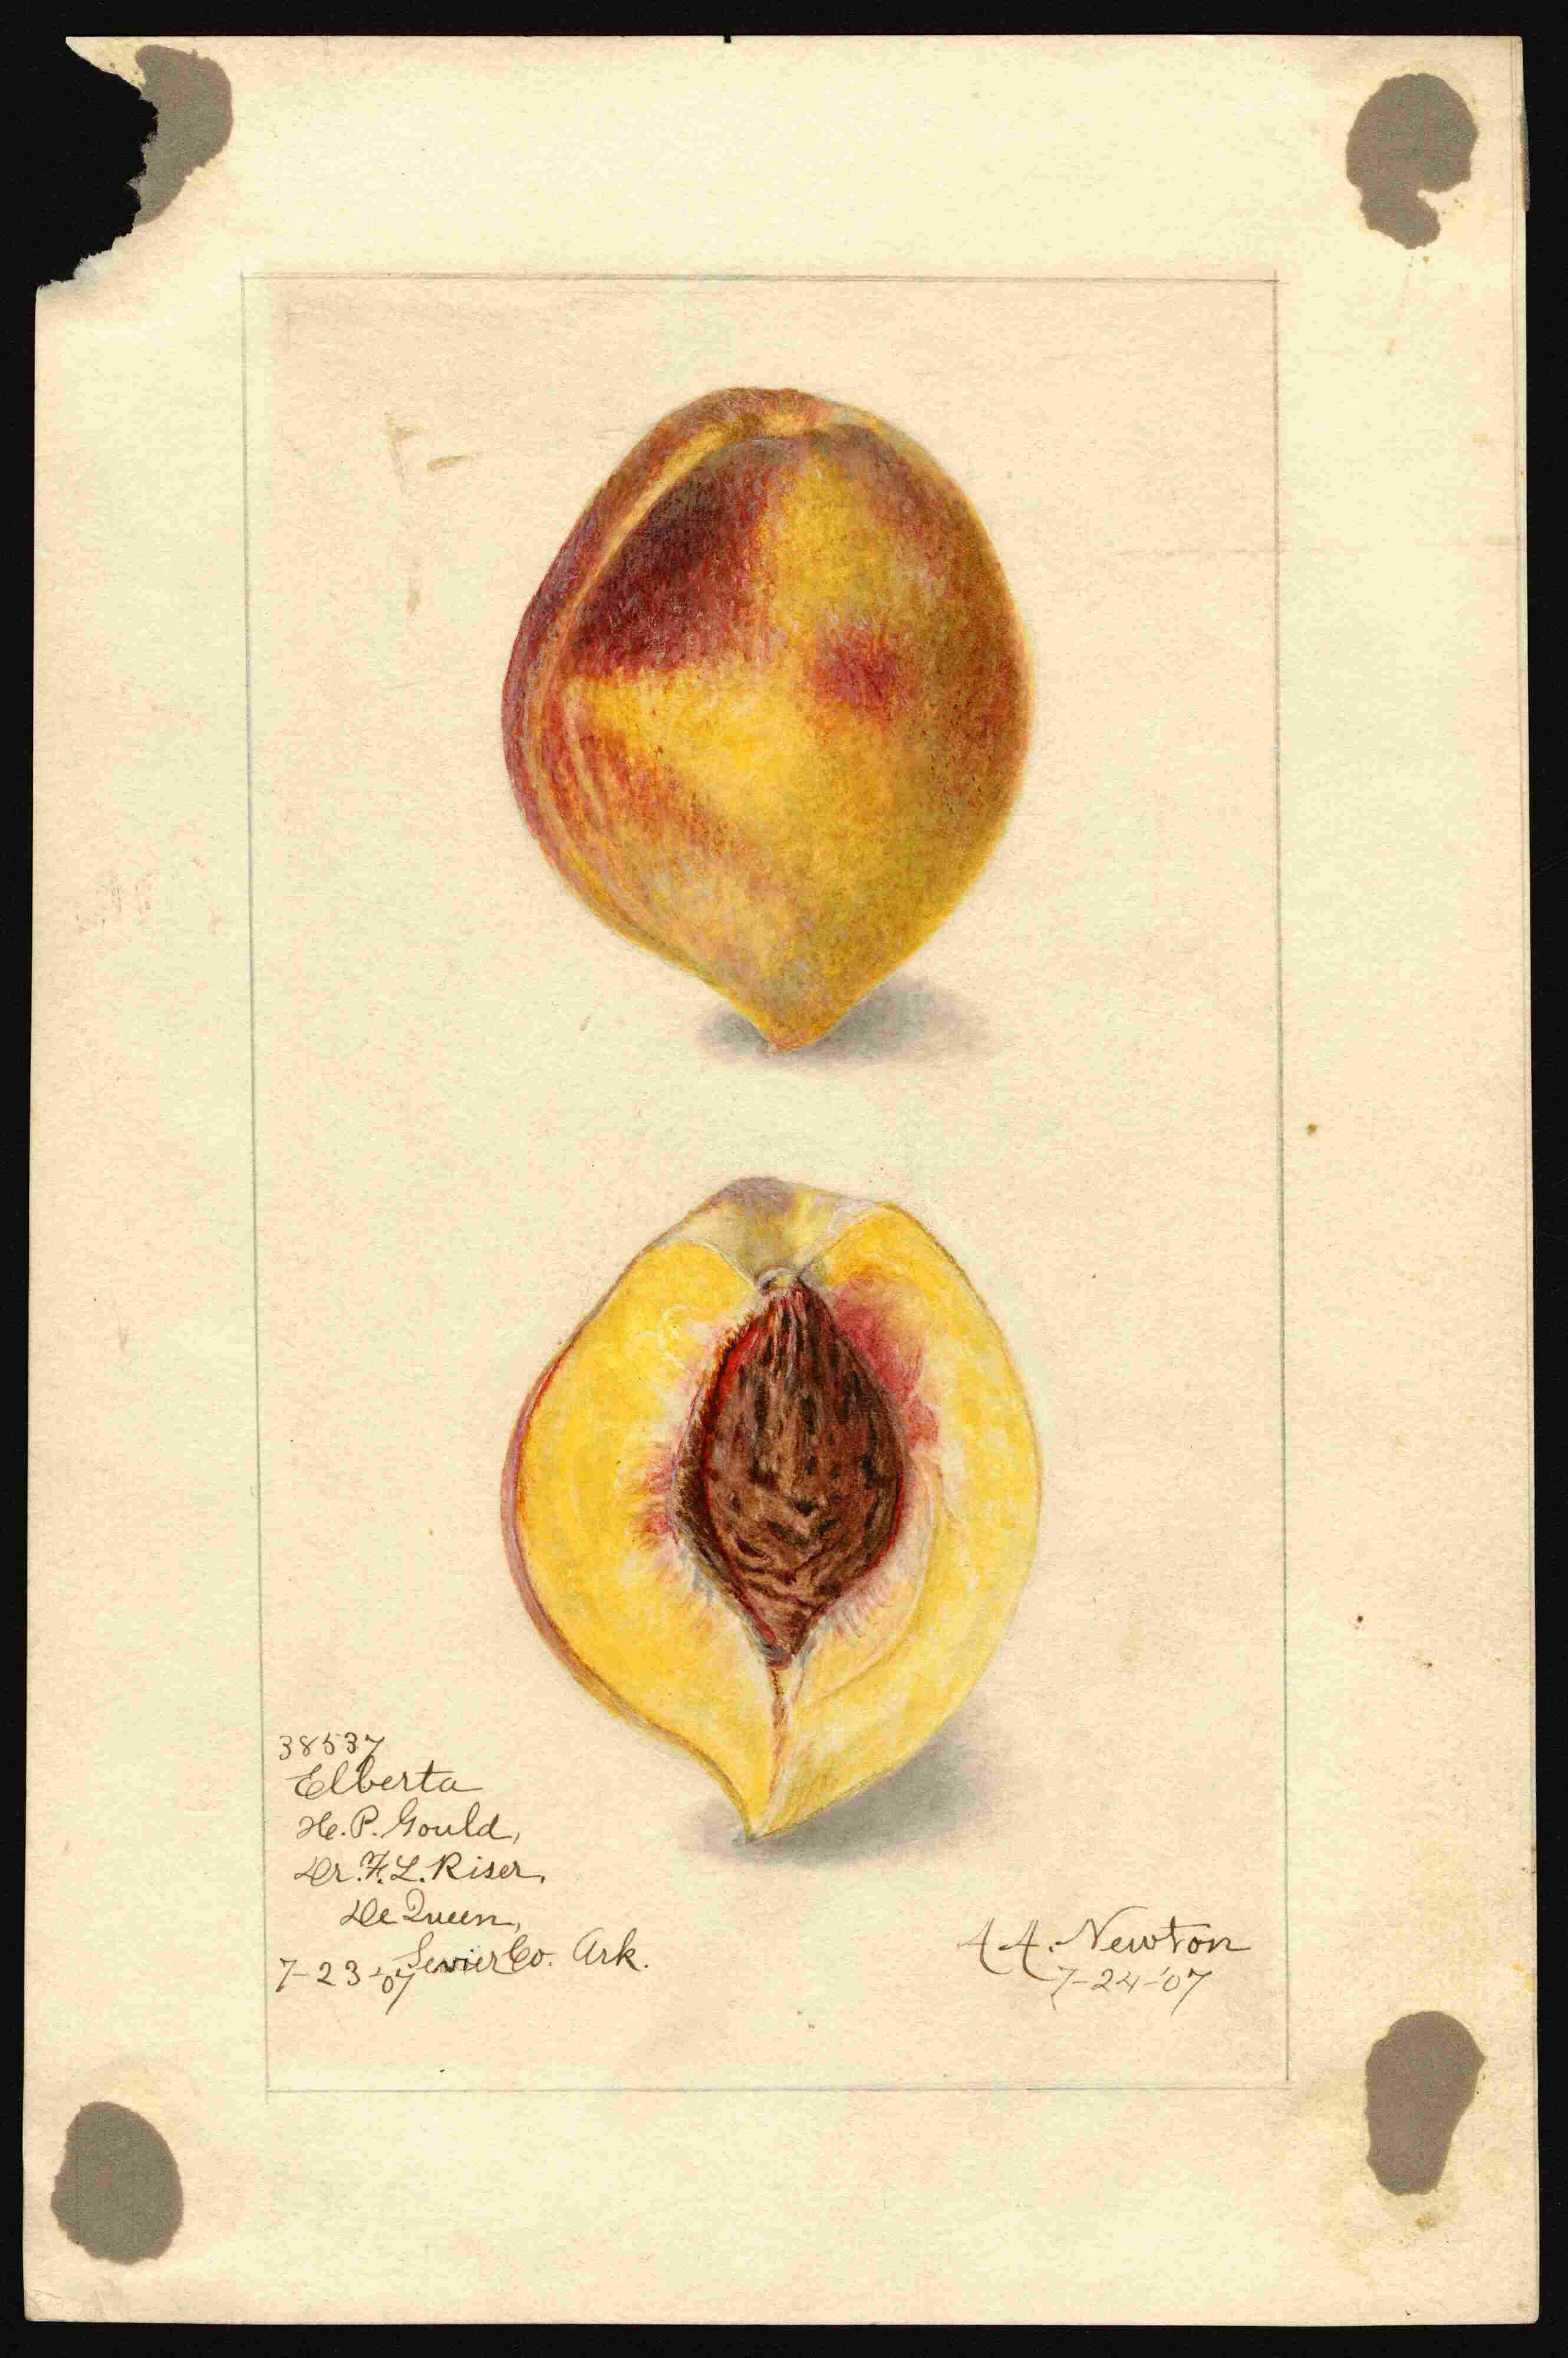 38537
Elberta
H. P. Gould,
Dr. F. L. Riser,
De Queen,
Sevier Co. Ark.
7-23-'07
A A. Newton
7-24-'07